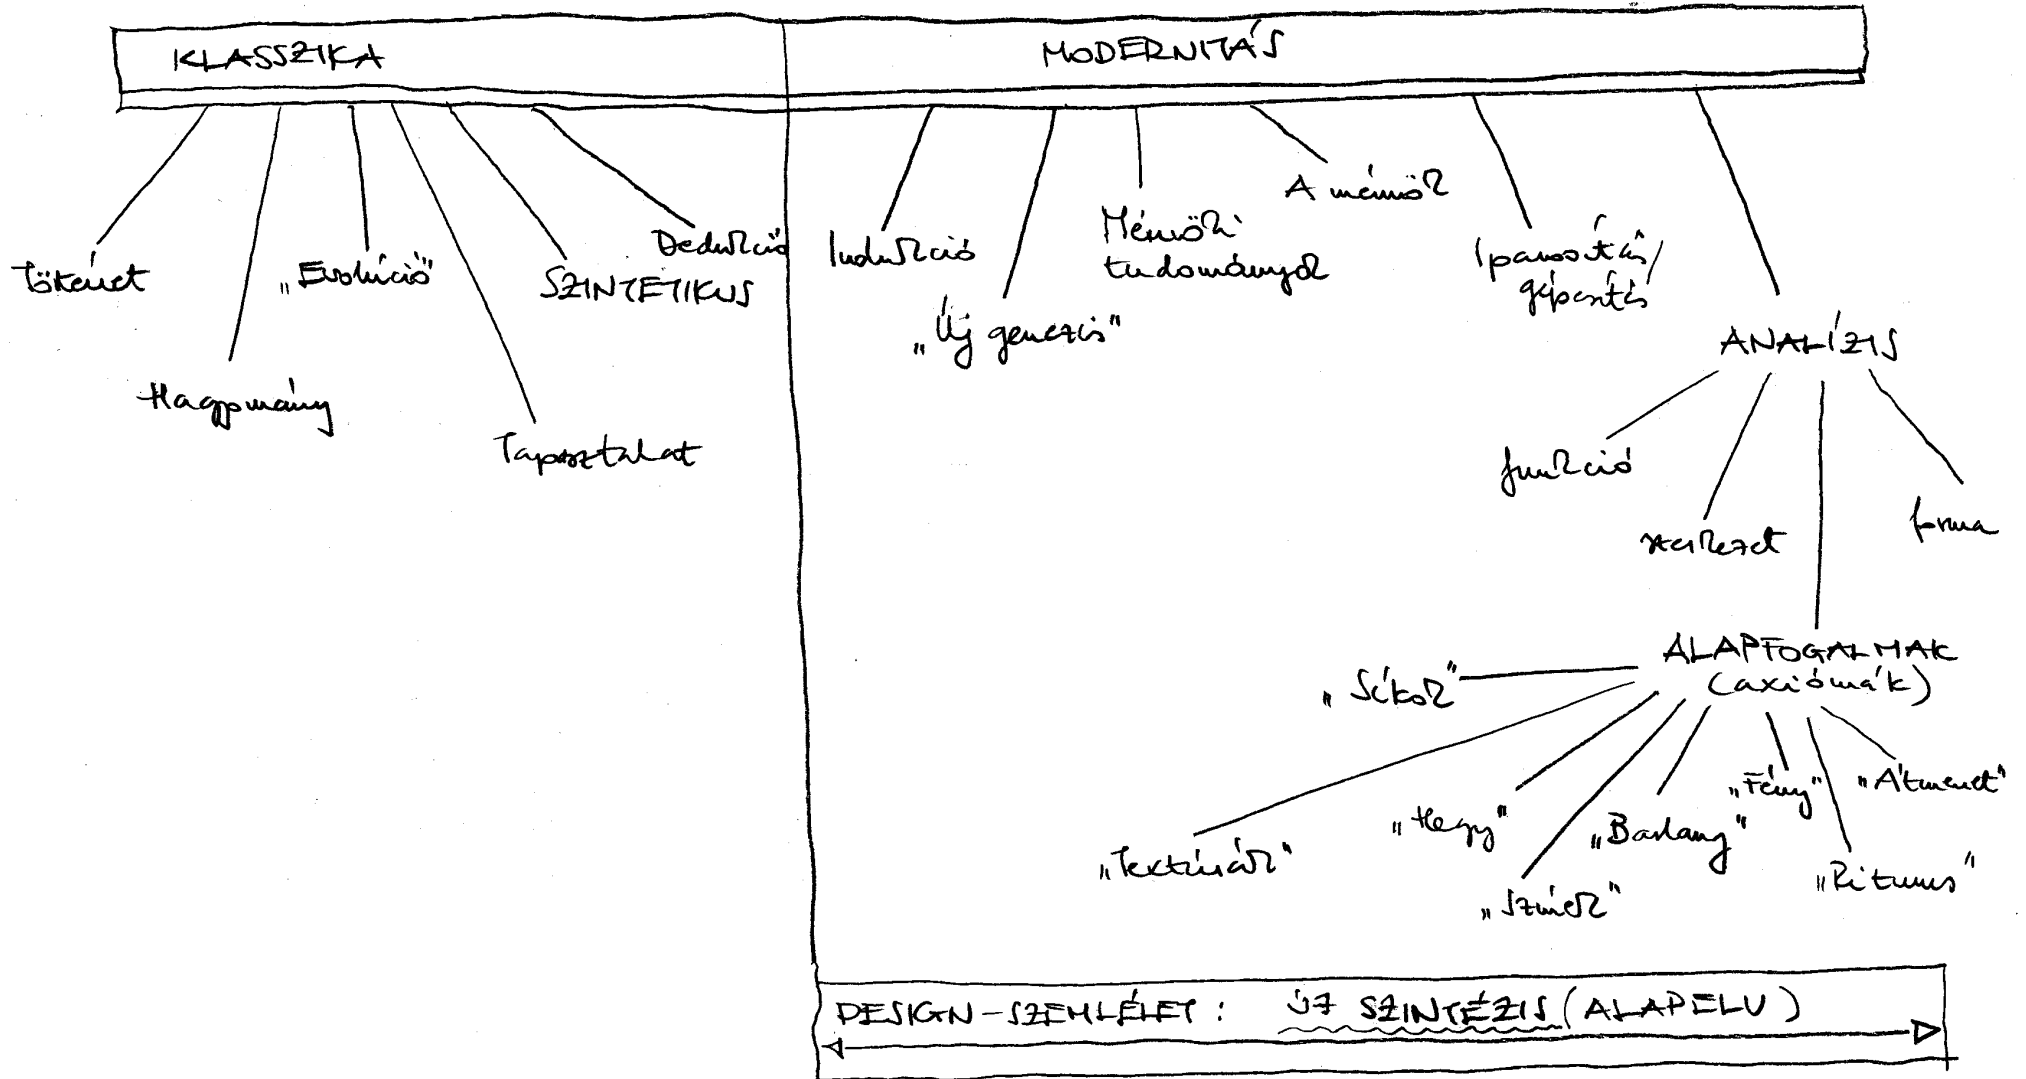 KLASSZIKA
MODERNITÁS
Történet
Hagyomány
„Evolúció"
Tapasztalat
SZINTETIKUS
Dedukció
Indukció
„Új genezis"
Mérnöki
tudományok
A mérnök
Iparosítás/
gépesítés
ANALÍZIS
funkció
szerkezet
forma
ALAPFOGALMAK
(axiómák)
„Síkok"
„Textúrák"
„Hegy"
„Színek"
„Barlang"
„Fény"
„Ritmus"
„Átmenet"
DESIGN-SZEMLÉLET: ÚJ SZINTÉZIS (ALAPELV)